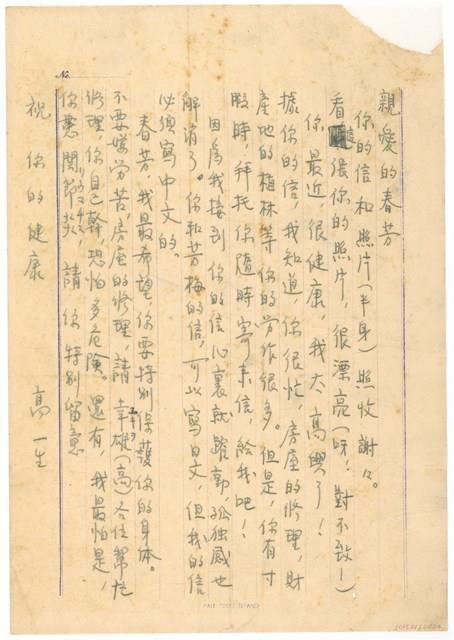 親愛的春芳
你的信和照片(半身)照收謝々。
看這張你的照片,很漂亮(呀!對不致!)
你最近很健康,我太高興了!
據你的信,我知道,你很忙,房屋的修理,財
產地的植林等你的勞作很多。但是,你有寸
股時,拜托你隨時寄來信,給我吧!
因爲我接到你的信心裏就躍動,孤独感也
解消了。你和芳梅的信,可以寫日文,但我的信
必須寫中文的。
春芳,我最希望,你要特別保護你的身体。
不要嫌勞苦,房屋的修理,請幸雄(高)各位幫忙
修理,你自己幹,恐怕多危險。還有,我最怕是,
你患関節炎,請你特別留意
祝你的健康
高一生
No.